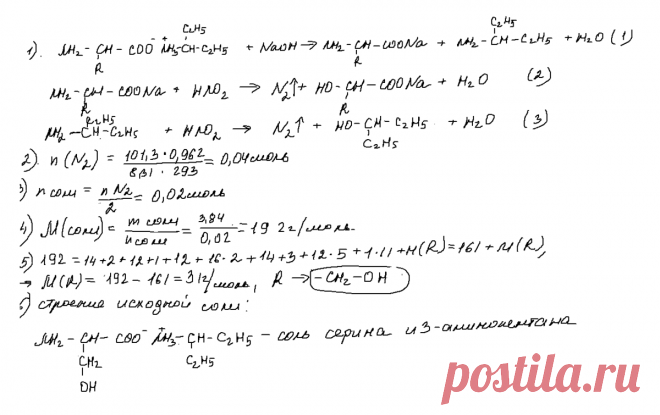 C2H5
1). NH2 – CH – COO⁻ ⁺NH3–CH–C2H5 + NaOH → NH2 – CH – COONa + NH2 – CH – C2H5 + H2O (1)
R R
C2H5
NH2 – CH – COONa + HNO2 → N2↑ + HO – CH – COONa + H2O (2)
R R
C2H5
NH2 – CH – C2H5 + HNO2 → N2↑ + HO – CH – C2H5 + H2O (3)
C2H5
2) n(N2) = 101,3 · 0,962 / 8,31 · 293 = 0,04 моль
3) n соли = n N2 / 2 = 0,02 моль
4) M(соли) = m соли / n соли = 3,84 / 0,02 = 192 г/моль.
5) 192 = 14+2+12+1+12+16·2+14+3+12·5+1·11+M(R) = 161 + M(R),
→ M(R) = 192 – 161 = 31 г/моль, R → –CH2–OH
6) строение исходной соли:
NH2 – CH – COO⁻ ⁺NH3 – CH – C2H5 – соль серина и 3-аминопентана
CH2 C2H5
OH
postila.ru